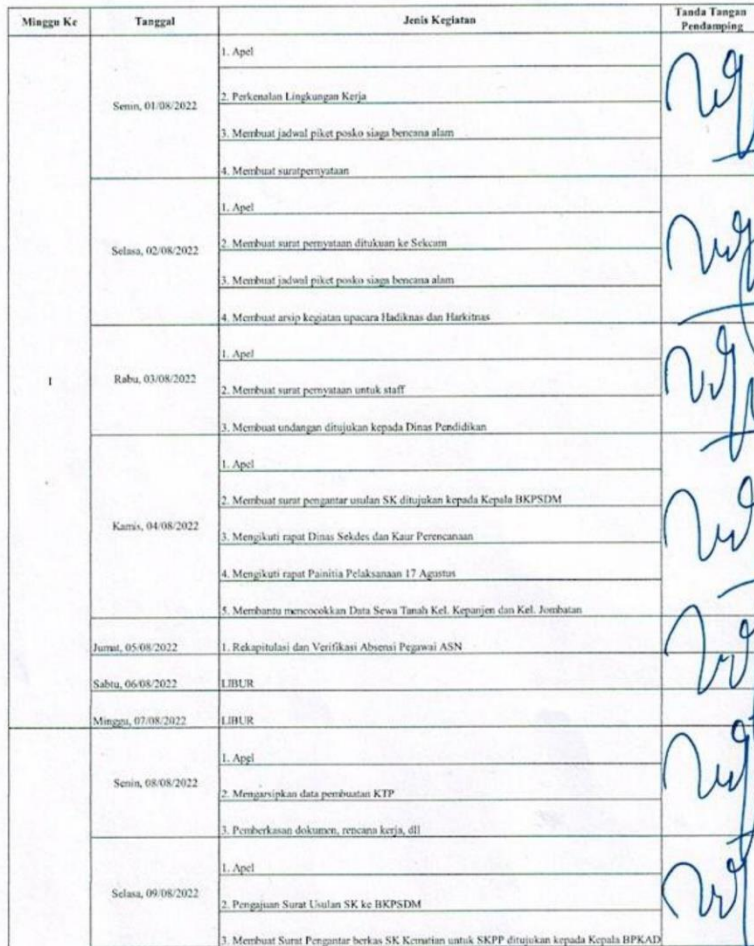 Minggu Ke Tanggal Jenis Kegiatan Tanda Tangan Pendamping
I
Senin, 01/08/2022
1. Apel
2. Perkenalan Lingkungan Kerja
3. Membuat jadwal piket posko siaga bencana alam
4. Membuat suratpernyataan
Selasa, 02/08/2022
1. Apel
2. Membuat surat pernyataan ditukuan ke Sekcam
3. Membuat jadwal piket posko siaga bencana alam
4. Membuat arsip kegiatan upacara Hadiknas dan Harkitnas
Rabu, 03/08/2022
1. Apel
2. Membuat surat pernyataan untuk staff
3. Membuat undangan ditujukan kepada Dinas Pendidikan
Kamis, 04/08/2022
1. Apel
2. Membuat surat pengantar usulan SK ditujukan kepada Kepala BKPSDM
3. Mengikuti rapat Dinas Sekdes dan Kaur Perencanaan
4. Mengikuti rapat Painitia Pelaksanaan 17 Agustus
5. Membantu mencocokkan Data Sewa Tanah Kel. Kepanjen dan Kel. Jombatan
Jumat, 05/08/2022 1. Rekapitulasi dan Verifikasi Absensi Pegawai ASN
Sabtu, 06/08/2022 LIBUR
Minggu, 07/08/2022 LIBUR
Senin, 08/08/2022
1. Apel
2. Mengarsipkan data pembuatan KTP
3. Pemberkasan dokumen, rencana kerja, dll
Selasa, 09/08/2022
1. Apel
2. Pengajuan Surat Usulan SK ke BKPSDM
3. Membuat Surat Pengantar berkas SK Kematian untuk SKPP ditujukan kepada Kepala BPKAD